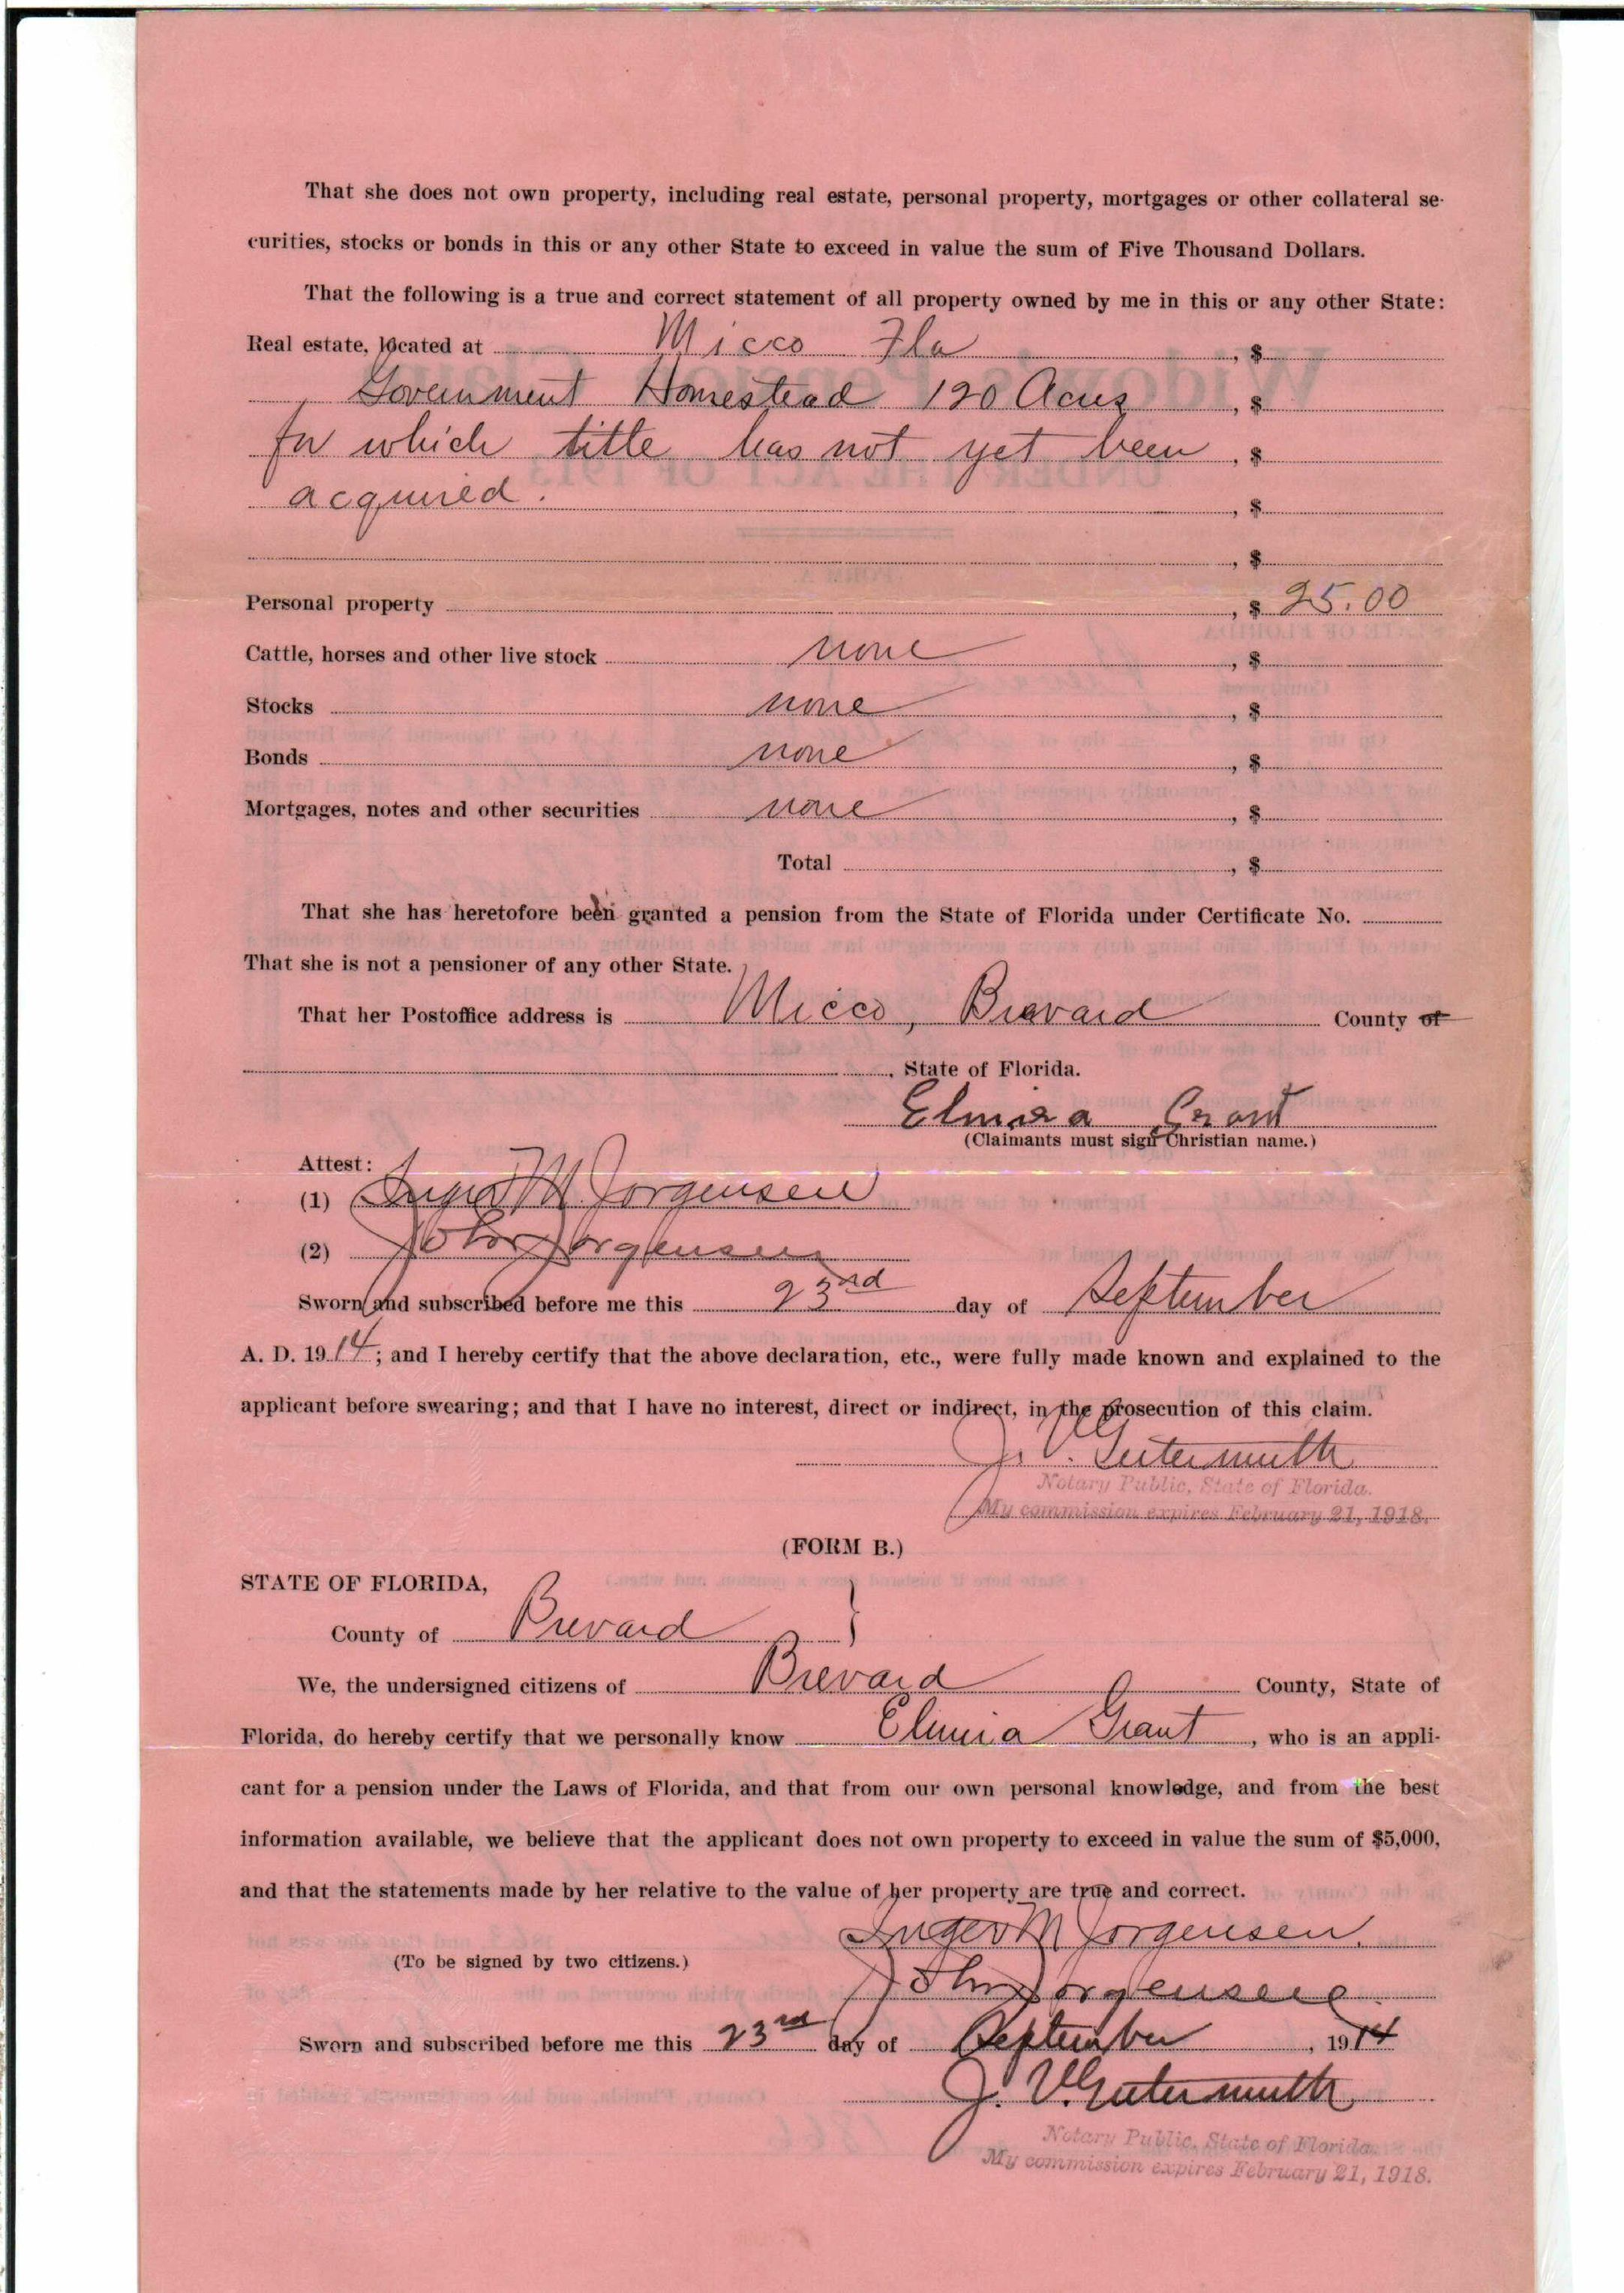 That she does not own property, including real estate, personal property, mortgages or other collateral se-
curities, stocks or bonds in this or any other State to exceed in value the sum of Five Thousand Dollars.
That the following is a true and correct statement of all property owned by me in this or any other State:
Real estate, located at Micco Fla , $
Government Homestead 120 Acres , $
for which title has not yet been , $
acquired. , $
, $
Personal property , $ 25.00
Cattle, horses and other live stock none , $
Stocks none , $
Bonds none , $
Mortgages, notes and other securities none , $
Total , $
That she has heretofore been granted a pension from the State of Florida under Certificate No.
That she is not a pensioner of any other State.
That her Postoffice address is Micco, Brevard County of
, State of Florida.
Elmira Grant
(Claimants must sign Christian name.)
Attest:
(1) Inger M Jorgensen
(2) John Jorgensen
Sworn and subscribed before me this 23rd day of September
A. D. 1914; and I hereby certify that the above declaration, etc., were fully made known and explained to the
applicant before swearing; and that I have no interest, direct or indirect, in the prosecution of this claim.
J. V. Gutermuth
Notary Public, State of Florida.
My commission expires February 21, 1918.
(FORM B.)
STATE OF FLORIDA,
County of Brevard }
We, the undersigned citizens of Brevard County, State of
Florida, do hereby certify that we personally know Elmira Grant, who is an appli-
cant for a pension under the Laws of Florida, and that from our own personal knowledge, and from the best
information available, we believe that the applicant does not own property to exceed in value the sum of $5,000,
and that the statements made by her relative to the value of her property are true and correct.
Inger M Jorgensen.
(To be signed by two citizens.)
John Jorgensen.
Sworn and subscribed before me this 23rd day of September, 1914
J. V. Gutermuth
Notary Public, State of Florida.
My commission expires February 21, 1918.